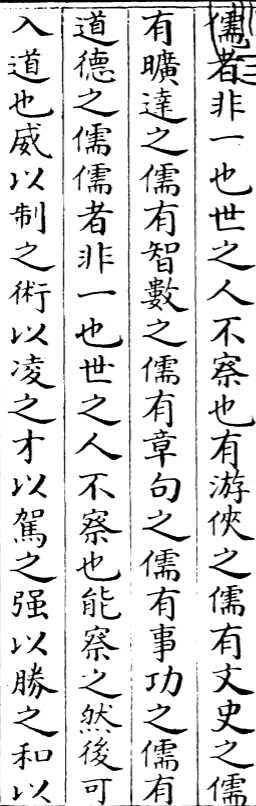 儒者非一也世之人不察也有游俠之儒有文史之儒
有曠達之儒有智數之儒有章句之儒有事功之儒有
道德之儒儒者非一也世之人不察也能察之然後可
入道也威以制之術以凌之才以駕之强以勝之和以